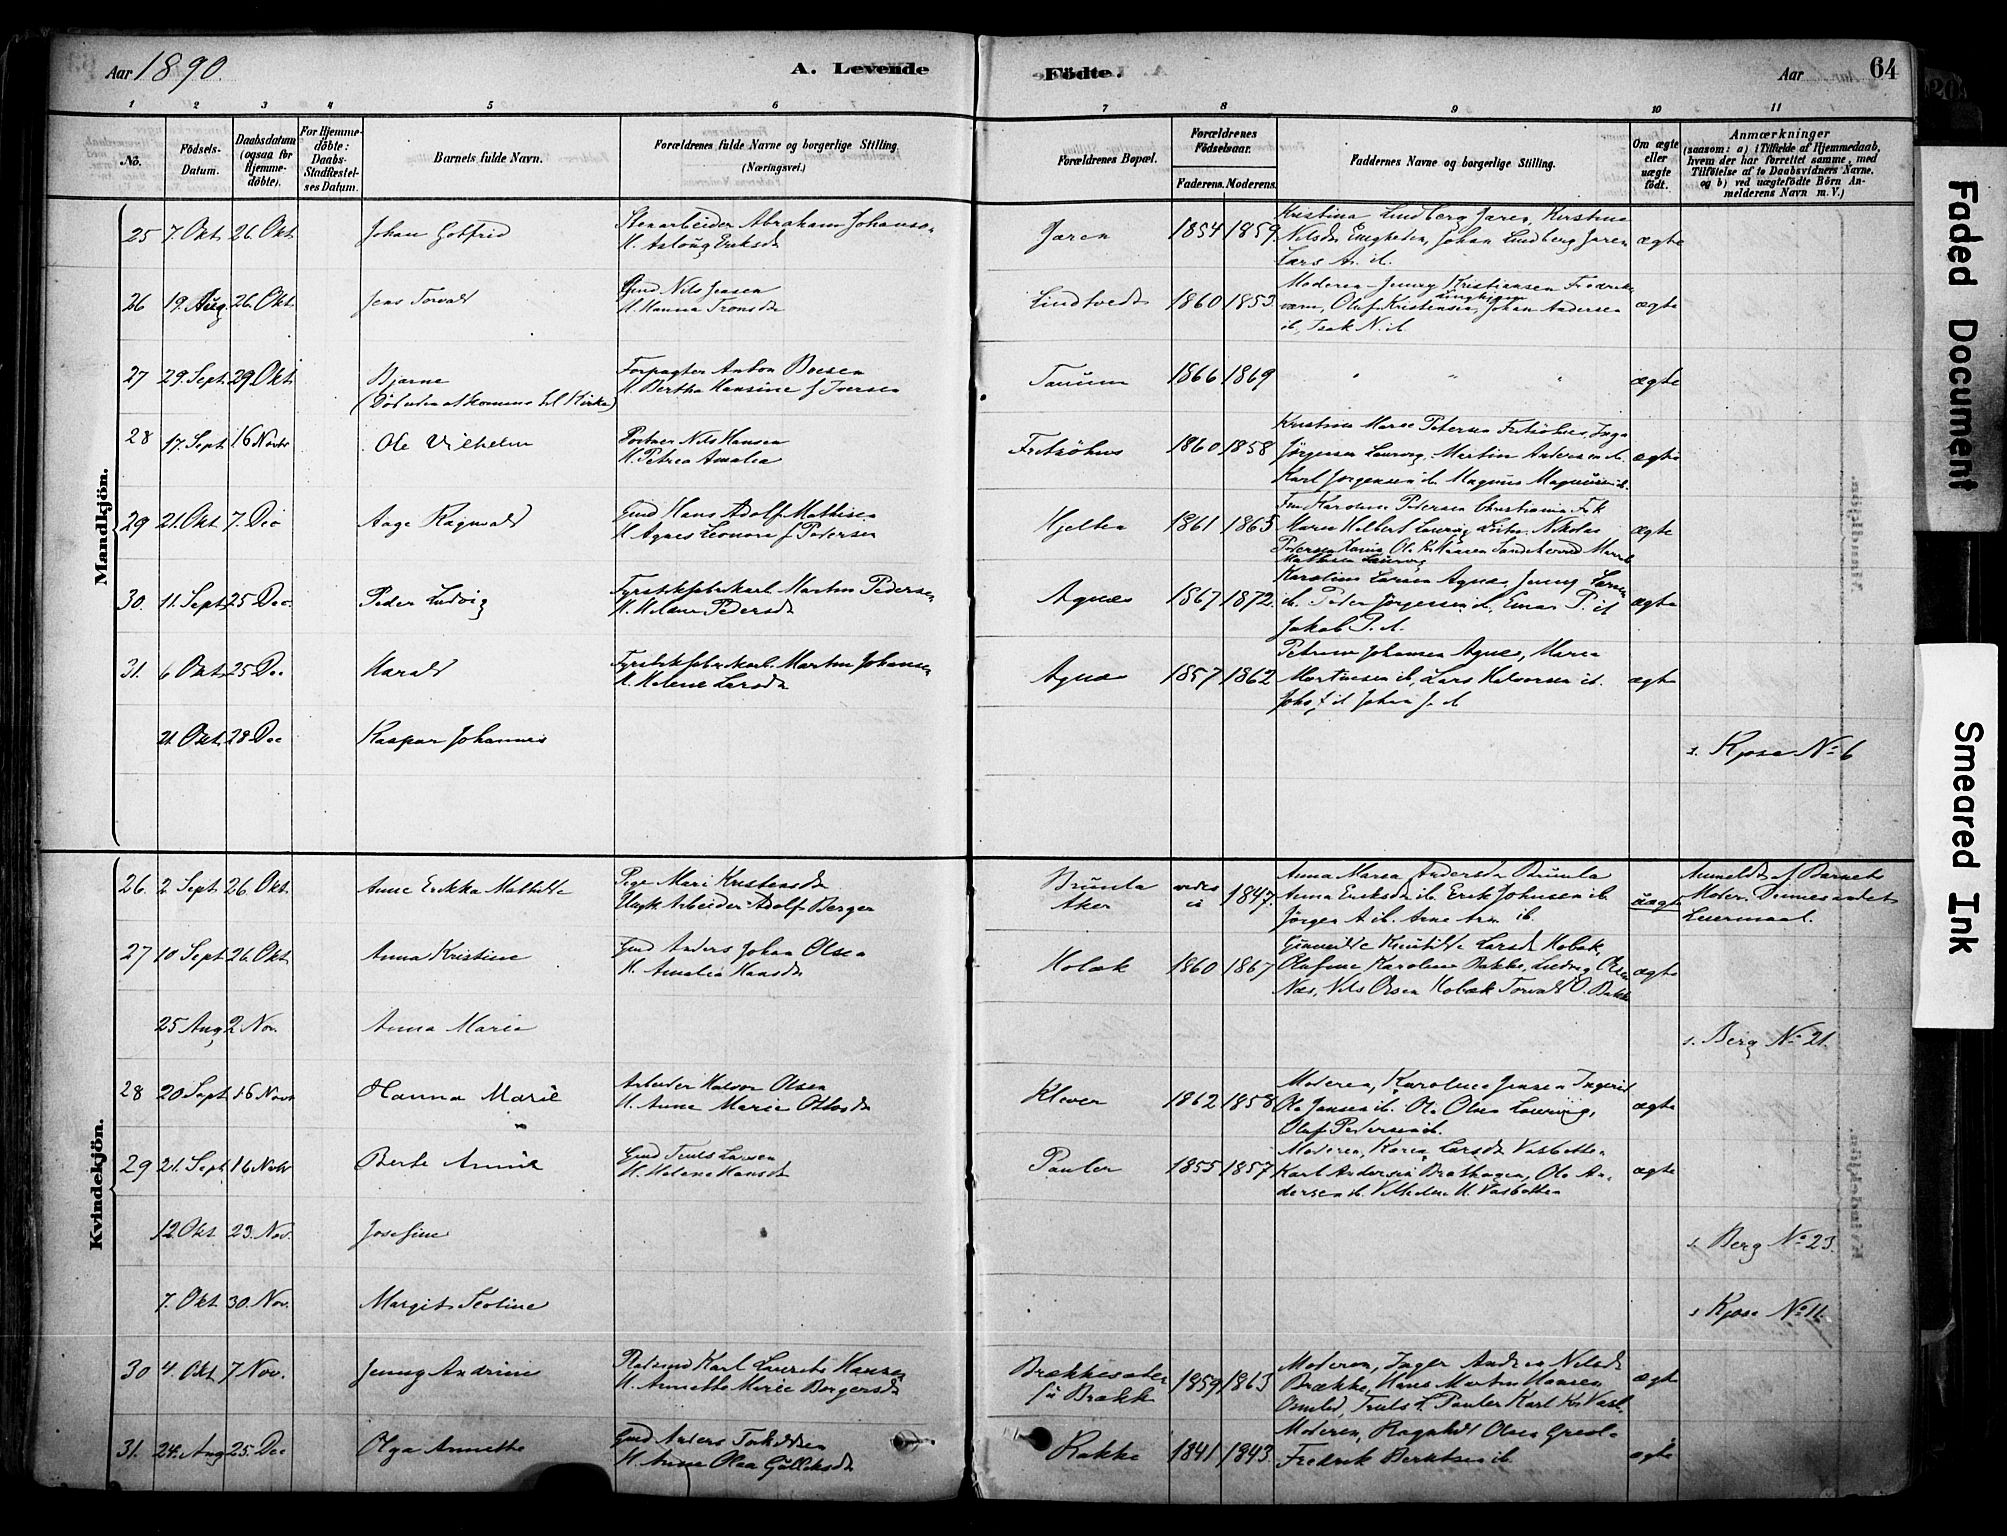 Aar 1890.
A. Levende
Födte.
Aar
64
1 2 3 4 5 6 7 8 9 10 11
No.
Födsels-Datum.
Daabsdatum (ogsaa for Hjemme-döbte).
For Hjemme-döbte: Daabs-Stadfæstel-ses Datum.
Barnets fulde Navn.
Forældrenes fulde Navne og borgerlige Stilling.
(Næringsvei.)
Forældrenes Bopæl.
Forældrenes Födselsaar.
Faderens. Moderens.
Faddernes Navne og borgerlige Stilling.
Om ægte eller uægte födt.
Anmærkninger
(saasom: a) i Tilfælde af Hjemmedaab,
hvem der har forrettet samme, med
Tilföielse af to Daabsvidners Navne,
og b) ved uægtefödte Börn An-
melderens Navn m. V.)
Mandkjön.
25 7 Okt 26 Okt Johan Gotfrid
Stenarbeider Abraham Johanss.
H. Aslaug Eriksd
Jaren 1854 1859
Kristina Lindberg Jaren, Kirstine
Nilsdr Enigheden, Johan Lindberg Jaren
Lars A. ib.
ægte
26 19. Aug. 26. Okt Jens Torvald
Gmd Nils Jensen
H. Hanna Tronsdr
Lindtvedt 1860 1853
Moderen, Jenny Kristiansen Fredriks-
værn, Oluf Kristensen, Johan Andersen
ib, Isak N. ib
ægte
27 29. Sept 29 Okt Bjarne
(Död uden at komme til Kirke)
Forpagter Anton Boesen
H. Bertha Hansine f Iversen
Tanum 1866 1869 " " " ægte
28 17. Sept 16 Novbr Ole Vilhelm
Portner Nils Hansen
H. Petrea Amalia
Fritzöhus 1860 1858
Kristine Marie Petersen Fritzöhus, Inga
Jörgensen Laurvig, Martin Andersen ib.
Karl Jörgensen ib Magnus Magnusen ib.
ægte
29 21. Okt 7. Dec Aage Ragnvald
Gmd Hans Adolf Mathisen
H. Agnes Leonora f Pedersen
Hjelten 1861 1865
Fru Karoline Pedersen Christiania Frk
Maren Helbert Laurvig Nikolai
Pedersen Ole Sandeherred
Mathisen Laurvig
ægte
30. 11. Sept 25 Dec. Peder Ludvig
Fyrstikfabrikarb. Martin Pedersen
H. Helene Pedersdr
Agnes 1867 1872
Karoline Larsen Agnes, Jenny Larsen
ib. Peter Jörgensen ib, Einar P. ib
Jakob P. ib.
ægte
31. 6 Okt 25 Dec Harald
Fyrstikfabrikarb. Martin Johansen
H. Helene Larsdr
Agnes 1857 1862
Petrine Johansen Agnes, Maren
Martinsen ib, Lars Halvorsen ib.
Johs. J. ib Johan J. ib
ægte
21 Okt. 28 Dec Kaspar Johannes
s. Kjose No 6
Kvindekjön.
26. 2 Sept 26 Okt. Anne Erikka Mathilde
Pige Mari Kristensdr
Ungk Arbeider Adolf Berger
Brunla
Aker
1847.
Anna Maria Andersdr Brunla
Anna Eriksdr ib. Erik Johnsen ib.
Jörgen A ib. Arne Arn ib.
uægte
Anmeldt af Barnets
Moder. Dennes andet
Leiermaal.
27 10 Sept. 26 Okt Anna Kristine
Gmd Anders Johan Olsen
H. Amalia Hansdr
Holæk 1860 1867
Gunnilde Knutilde Larsdr Holæk,
Olufine Karoline Bakke, Ludvig Olsen
Næs, Nils Olsen Holæk Torvald O. Bakke
ægte
25 Aug 2 Nov. Anna Maria
s. Berg No 21.
28 20 Sept 16 Novbr Hanna Marie
Arbeider Halvor Olsen
H. Anne Marie Ottosdr
Klever 1862 1858
Moderen, Karoline Jensen Ingerid
Ole Jansen ib. Ole Olsen Laurvig,
Oluf Pedersen ib.
ægte
29 21. Sept 16 Novbr Berte Annie
Gmd Truls Larsen
H. Helene Hansdr
Pauler 1855 1857
Moderen, Karen Larsdr Vasbotten
Karl Andersen Brathagen, Ole An-
dersen ib. Vilhelm H. Vasbotten
ægte
12 Okt 23. Nov. Josefine
s. Berg No 23.
7. Okt 30. Nov. Margit Teoline
s Kjose No 11.
30 4. Okt 7 Nov. Jenny Andrine
Pladsmd Karl Laurits Hansen
H. Annette Marie Borgersdr
Brækkesæter
u Brække
1859 1863
Moderen, Inger Andrea Nilsdr
Brække, Hans Martin Hansen
Omlid, Truls L. Pauler Karl Kr Vasb.
ægte
31. 24. Aug 25. Dec Olga Annette
Gmd Anders Torkildsen
H. Anne Olea Gulliksdr
Rakke 1841 1843.
Moderen, Ragnhild Olsen
Fredrik Berntsen ib.
ægte
Faded Document
Smeared Ink